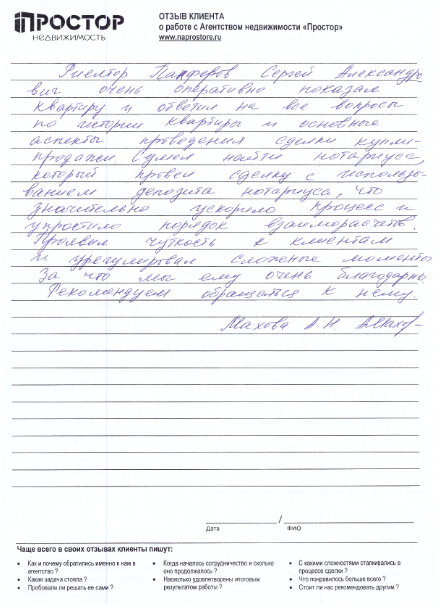 ПРОСТОР
НЕДВИЖИМОСТЬ
ОТЗЫВ КЛИЕНТА
о работе с Агентством недвижимости «Простор»
www.naprostore.ru
Риелтор Панферов Сергей Александро
вич очень оперативно показал
квартиру и ответил на все вопросы
по истории квартиры и основные
аспекты проведения сделки купли-
продажи. Сумел найти нотариуса,
который провел сделку с использо-
ванием депозита нотариуса, что
значительно ускорило процесс и
упростило порядок взаиморасчетов.
Проявил чуткость к клиентам
и урегулировал сложные моменты
За что мы ему очень благодарны.
Рекомендуем обращаться к нему.
Махова А.Н
Дата / ФИО
Чаще всего в своих отзывах клиенты пишут:
• Как и почему обратились именно к нам в агентство ?
• Какая задача стояла ?
• Пробовали ли решать ее сами ?
• Когда началось сотрудничество и сколько оно продолжалось ?
• Насколько удовлетворены итоговым результатом работы ?
• С какими сложностями сталкивались в процессе сделки ?
• Что понравилось больше всего ?
• Стоит ли нас рекомендовать другим ?